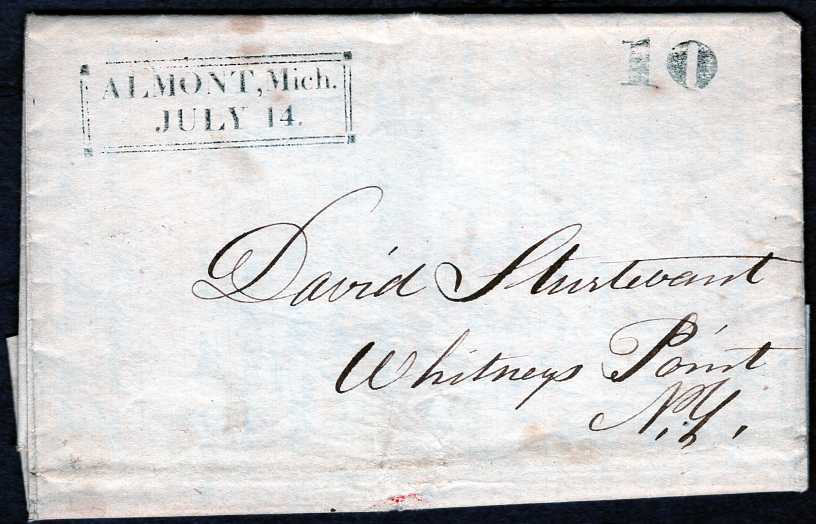 ALMONT, Mich.
JULY 14.
10
David Sturtevant
Whitneys Point
N.Y.